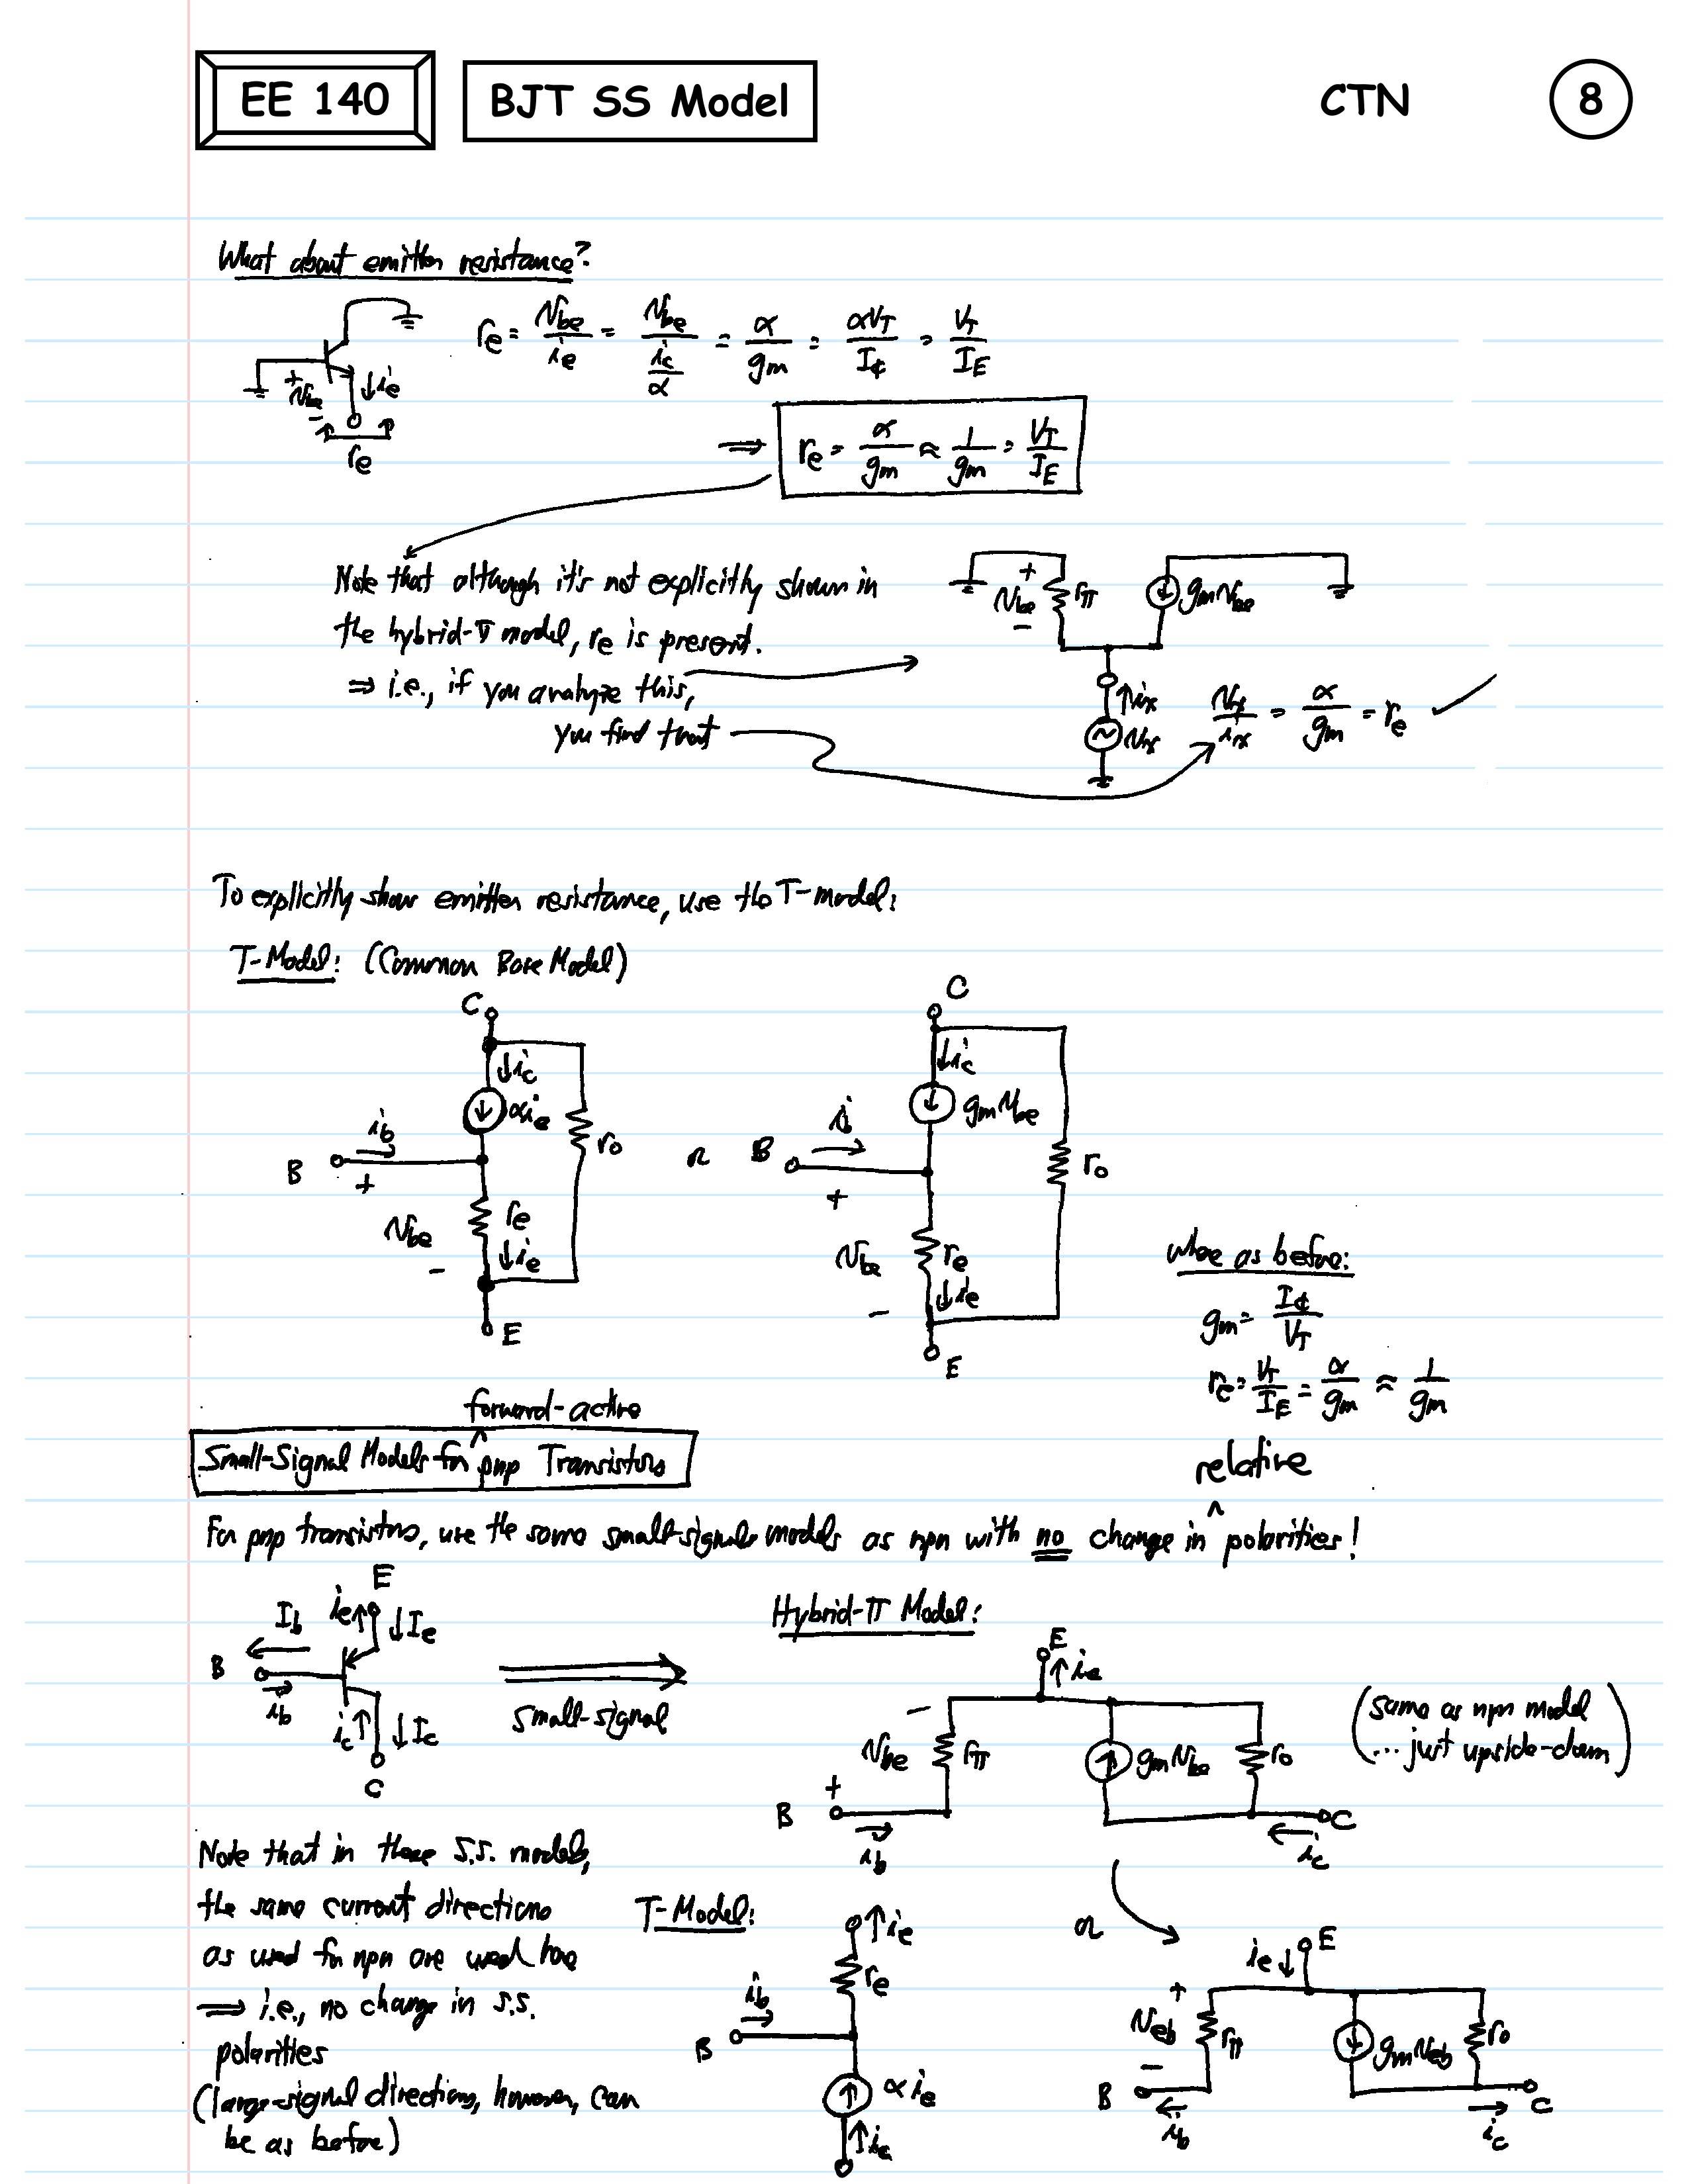 EE 140
BJT SS Model
CTN
8
What about emitter resistance?
r_e = v_be / i_e = v_be / (i_c / α) = α / g_m = αV_T / I_C = V_T / I_E
+ v_be - ↓i_e
r_e
⇒ r_e = α / g_m ≈ 1 / g_m = V_T / I_E
Note that although it's not explicitly shown in
the hybrid-π model, r_e is present.
⇒ i.e., if you analyze this,
you find that
+ v_be - r_π g_m v_be
↑i_x v_x
v_x / i_x = α / g_m = r_e ✓
To explicitly show emitter resistance, use the T-model:
T-Model: (Common Base Model)
C
↓i_c
αi_e
r_o
i_b →
B
+
v_be
-
r_e
↓i_e
E
or
C
↓i_c
g_m v_be
r_o
i_b →
B
+
v_be
-
r_e
↓i_e
E
where as before:
g_m = I_C / V_T
r_e = V_T / I_E = α / g_m ≈ 1 / g_m
forward-active
Small-Signal Models for ^ pnp Transistors
relative
For pnp transistors, use the same small-signal models as npn with no change in ^ polarities!
E
i_e↑ ↓I_e
I_b ←
B
i_b →
i_c↑ ↓I_c
C
⇒ small-signal
Hybrid-π Model:
E
↑i_e
-
v_be
+
r_π
g_m v_be
r_o
B
i_b →
C
← i_c
(same as npn model
... just upside-down)
Note that in these S.S. models,
the same current directions
as used for npn are used here
⇒ i.e., no change in s.s.
polarities
(large-signal directions, however, can
be as before)
T-Model:
↑i_e
r_e
i_b →
B
αi_e
↑i_c
or
E
i_e↓
+
v_eb
-
r_π
g_m v_eb
r_o
B
← i_b
C
i_c →